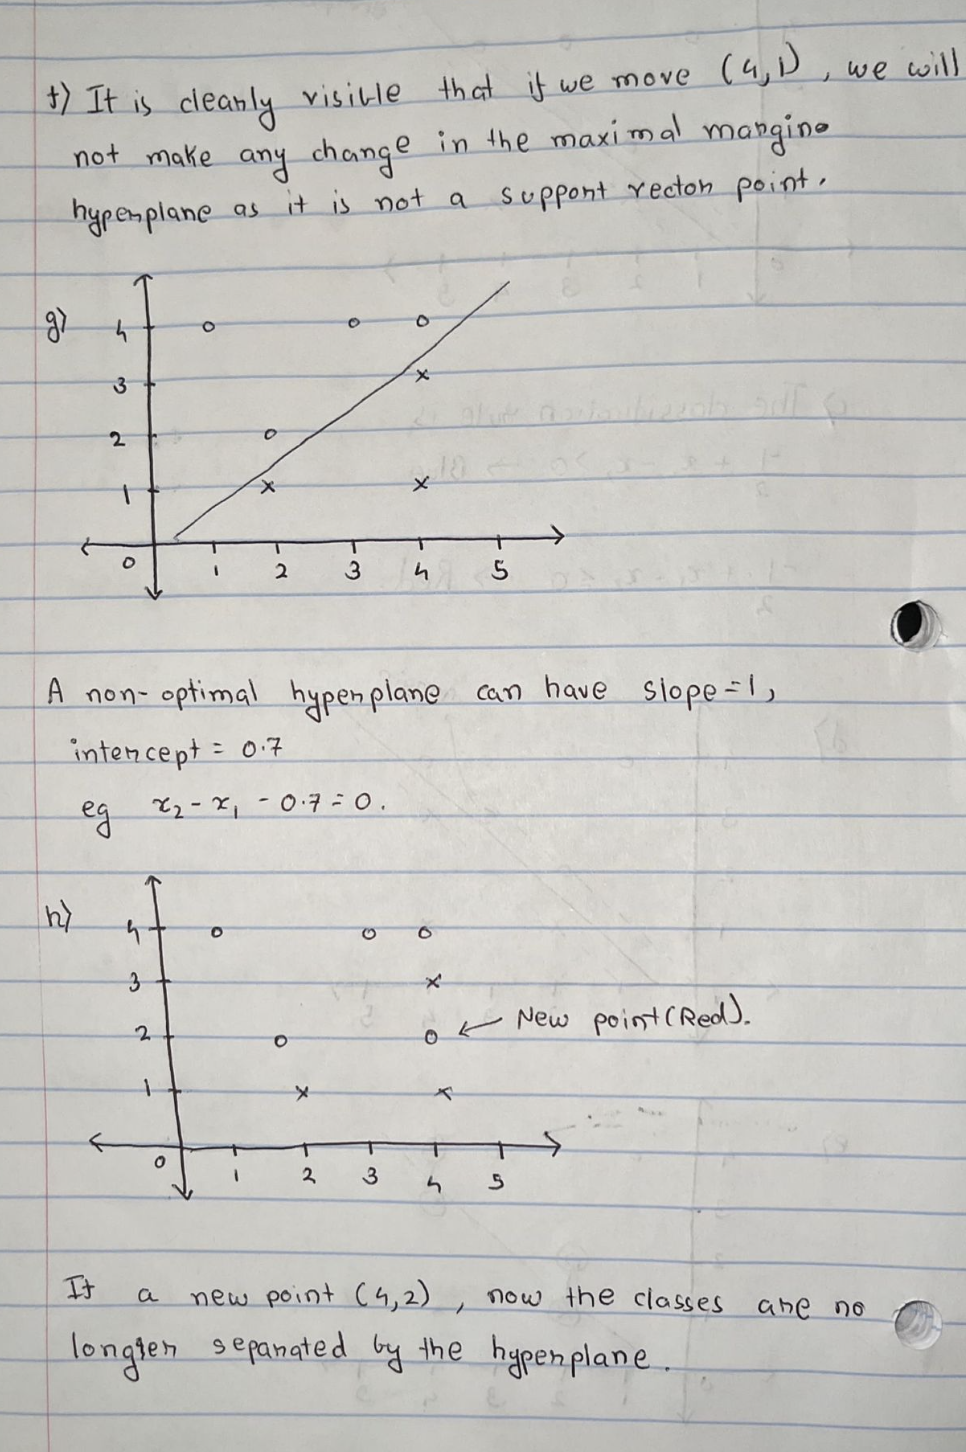 f) It is clearly visible that if we move (4,1), we will
not make any change in the maximal margin
hyperplane as it is not a support vector point.
g)
4
3
2
1
0 1 2 3 4 5
A non-optimal hyperplane can have slope=1,
intercept = 0.7
eg x₂ - x₁ - 0.7 = 0.
h)
4
3
2 ← New point (Red).
1
0 1 2 3 4 5
If a new point (4,2), now the classes are no
longer separated by the hyperplane.